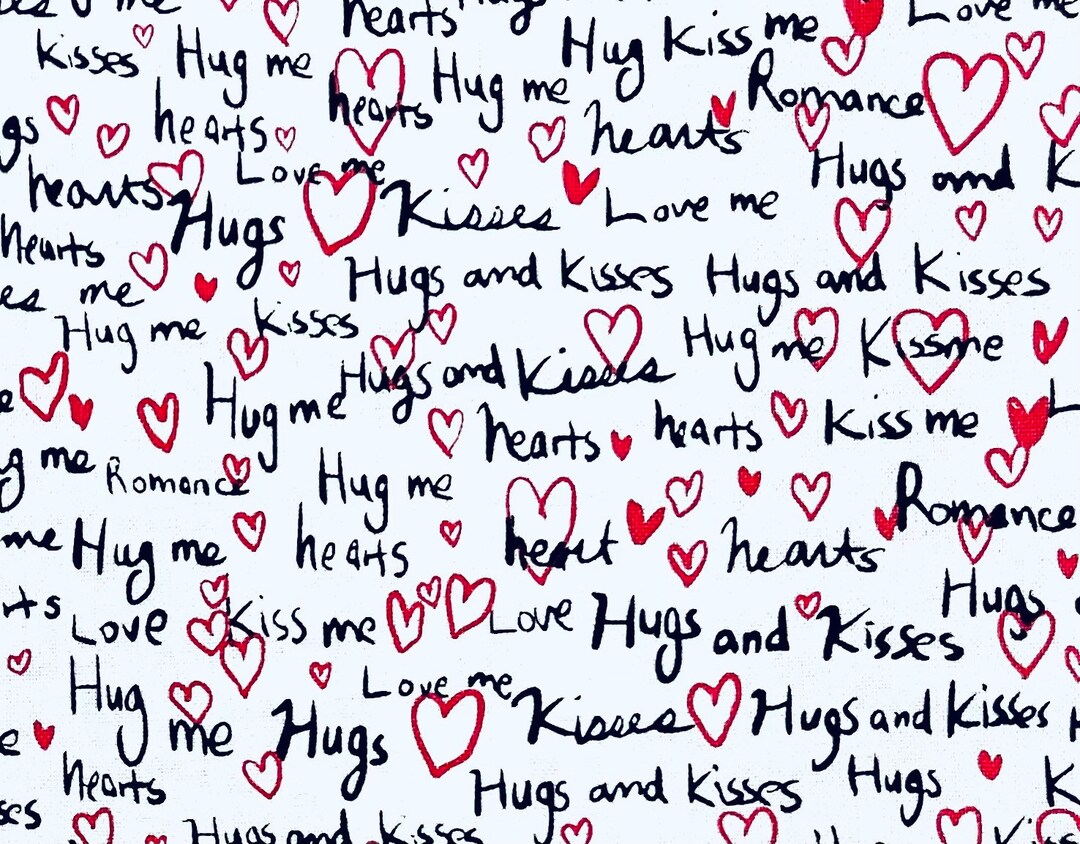 hearts
Love me
kisses Hug me Hug me Hug Kiss me
hearts Romance
hearts hearts
Love me Hugs and K
hearts Hugs Kisses Love me
hearts
me Hugs and Kisses Hugs and Kisses
Hug me kisses Hug me Kiss me
Hugs and Kisses
Hug me hearts hearts Kiss me
me Romance Hug me Romance
me Hug me hearts heart hearts
Hugs
Love Kiss me Love Hugs and Kisses
Hug me Love me
Hugs Kisses Hugs and Kisses
hearts Hugs and Kisses Hugs
Hugs and Kisses